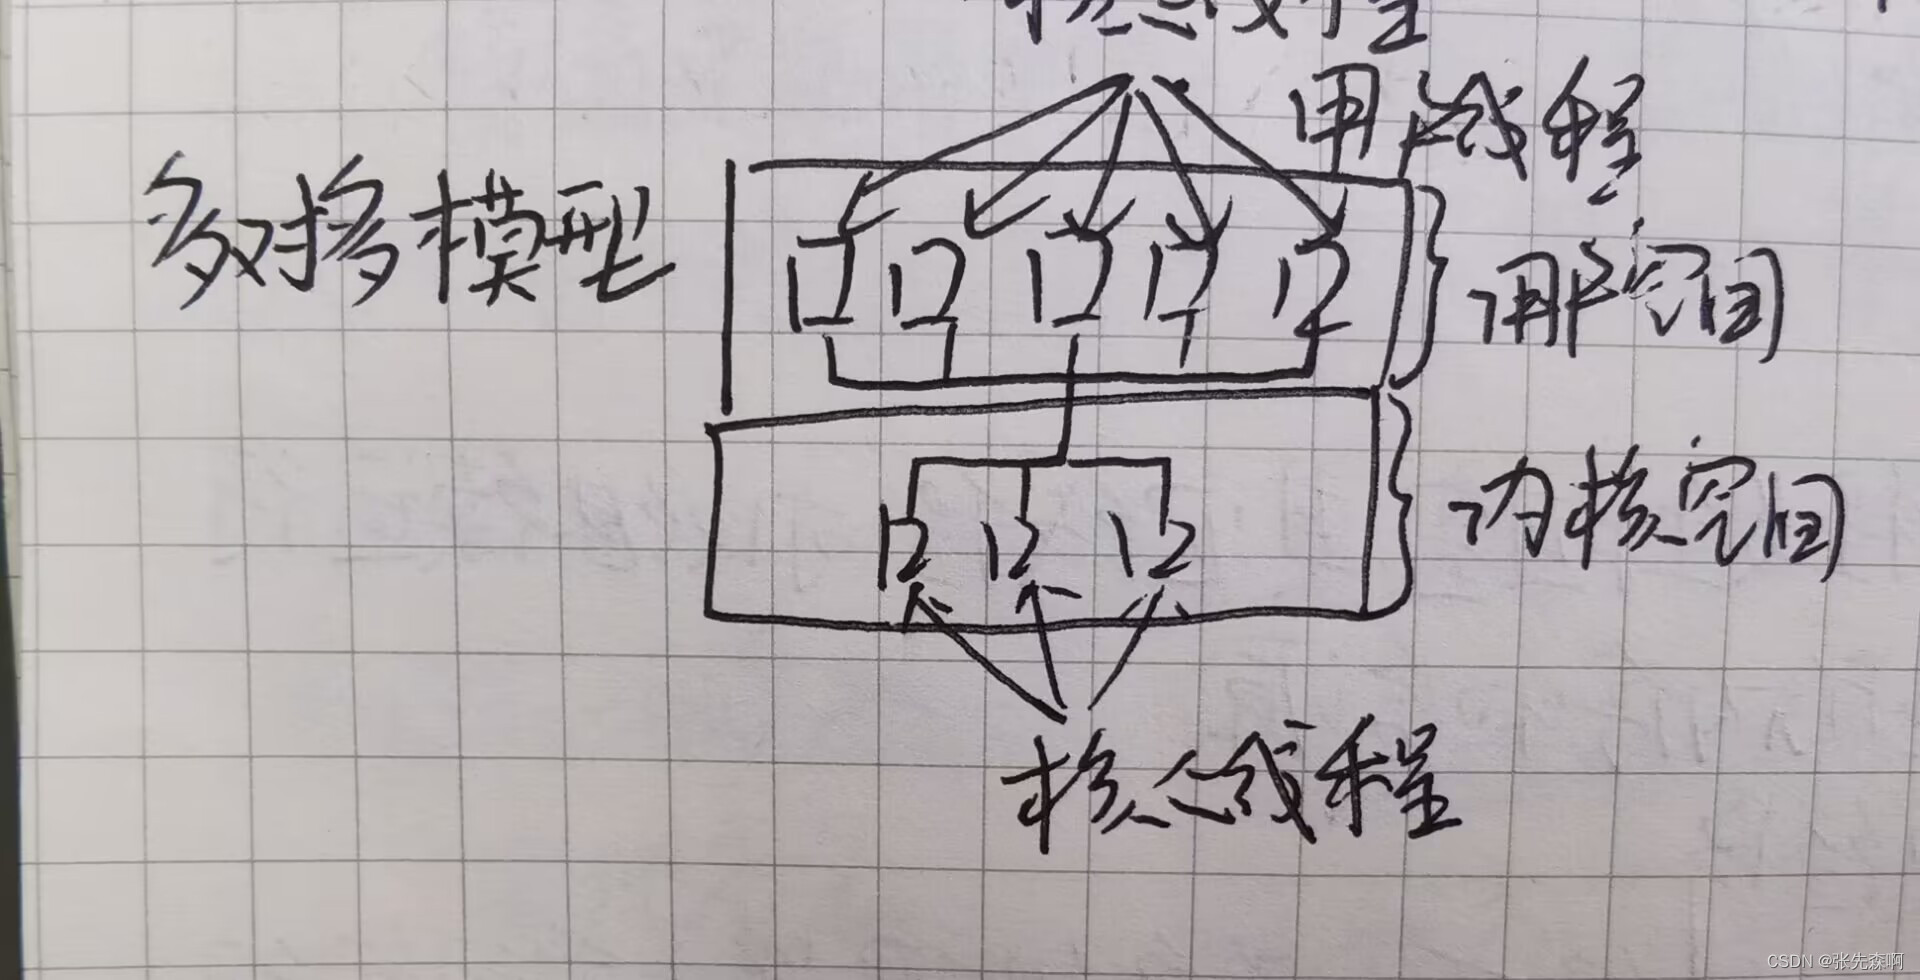 核心线程
用户线程
多对多模型
用户空间
内核空间
核心线程
CSDN @张先森啊